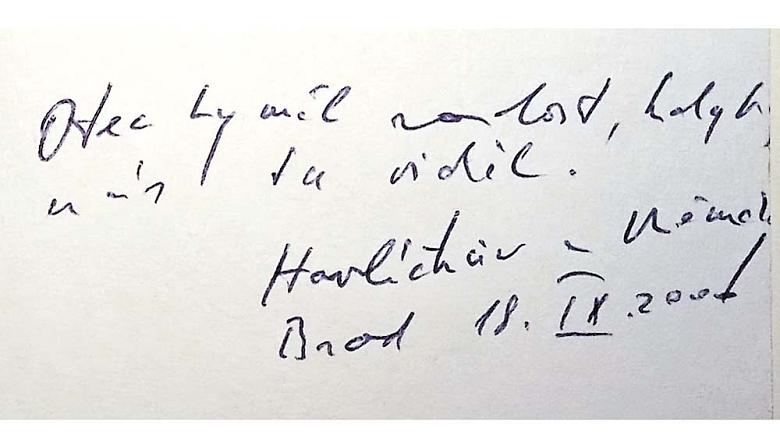 Otec by měl radost, kdyb
nás tu viděl.
Havlíčkův a
Brod 18. IX.